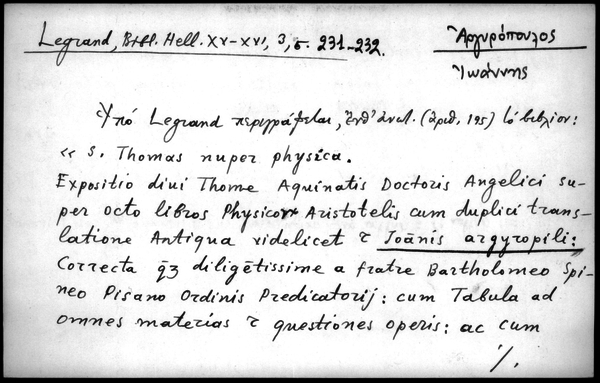 Legrand, Bibl. Hell. XV-XVI, 3, σ. 231-232.
Ἀργυρόπουλος
Ἰωάννης
Ὑπό Legrand περιγράφεται, ἔνθ' ἀνωτ. (ἀριθ. 195) τό βιβλίον:
« S. Thomas nuper physica.
Expositio diui Thome Aquinatis Doctoris Angelici su-
per octo libros Physicoꝝ Aristotelis cum duplici trans-
latione Antiqua videlicet ⁊ Joānis argyropili:
Correcta q̄ꝫ diligētissime a fratre Bartholomeo Spi-
neo Pisano Ordinis Predicatorij: cum Tabula ad
omnes materias ⁊ questiones operis: ac cum
./.